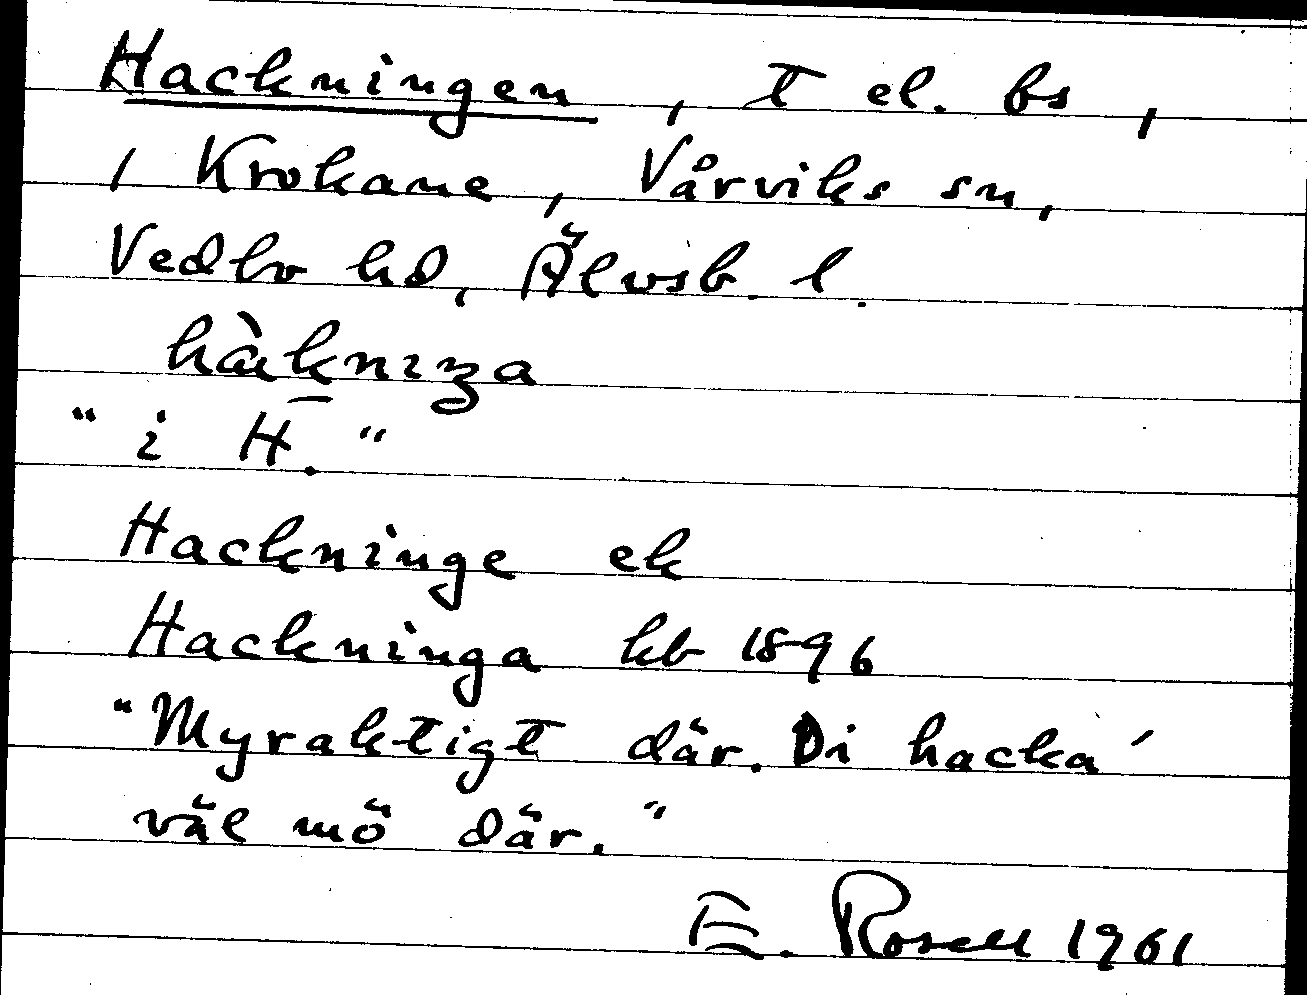 Hackningen, t el. bs,
1 Krokane, Vårviks sn,
Vedbo hd, Älvsb. l.
"i H."
Hackninge ek
Hackninga kb 1896
"Myraktigt där. Di hacka'
väl mö där."
E. Rosell 1961